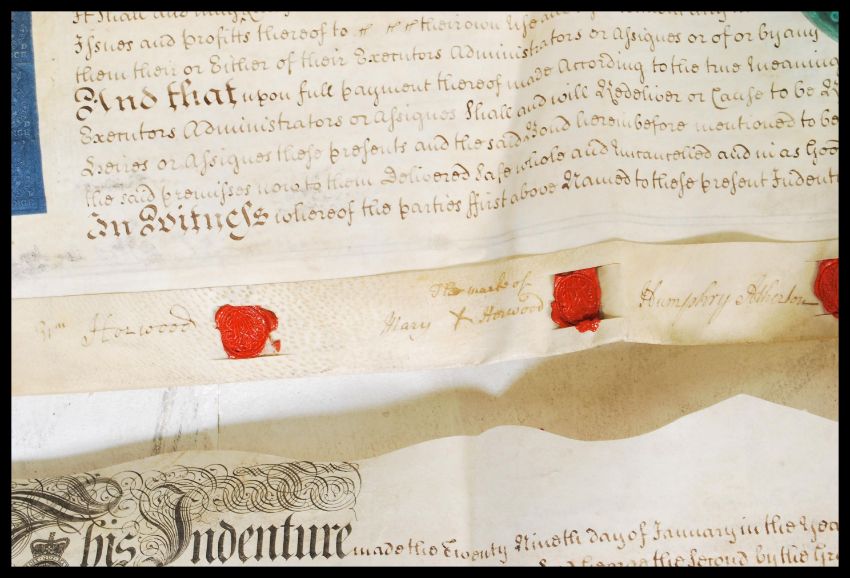 Issues and profitts thereof to their own Use and
them their or Either of their Executors Administrators or Assignes or of or by any
And that upon full payment thereof made According to the true Meaning
Executors Administrators or Assignes Shall and will Redeliver or Cause to be
Heires or Assignes these presents and the said Bond hereinbefore mentioned to be
the said premisses now to them Delivered Safe whole and Uncancelled and in as Good
In Witness whereof the parties ffirst above Named to these present Indent
Wm Horwood
The marke of
Mary X Horwood
Humphry Atherton
This Indenture made the Twenty Nineth day of January in the Yea
George the Second by the Gr